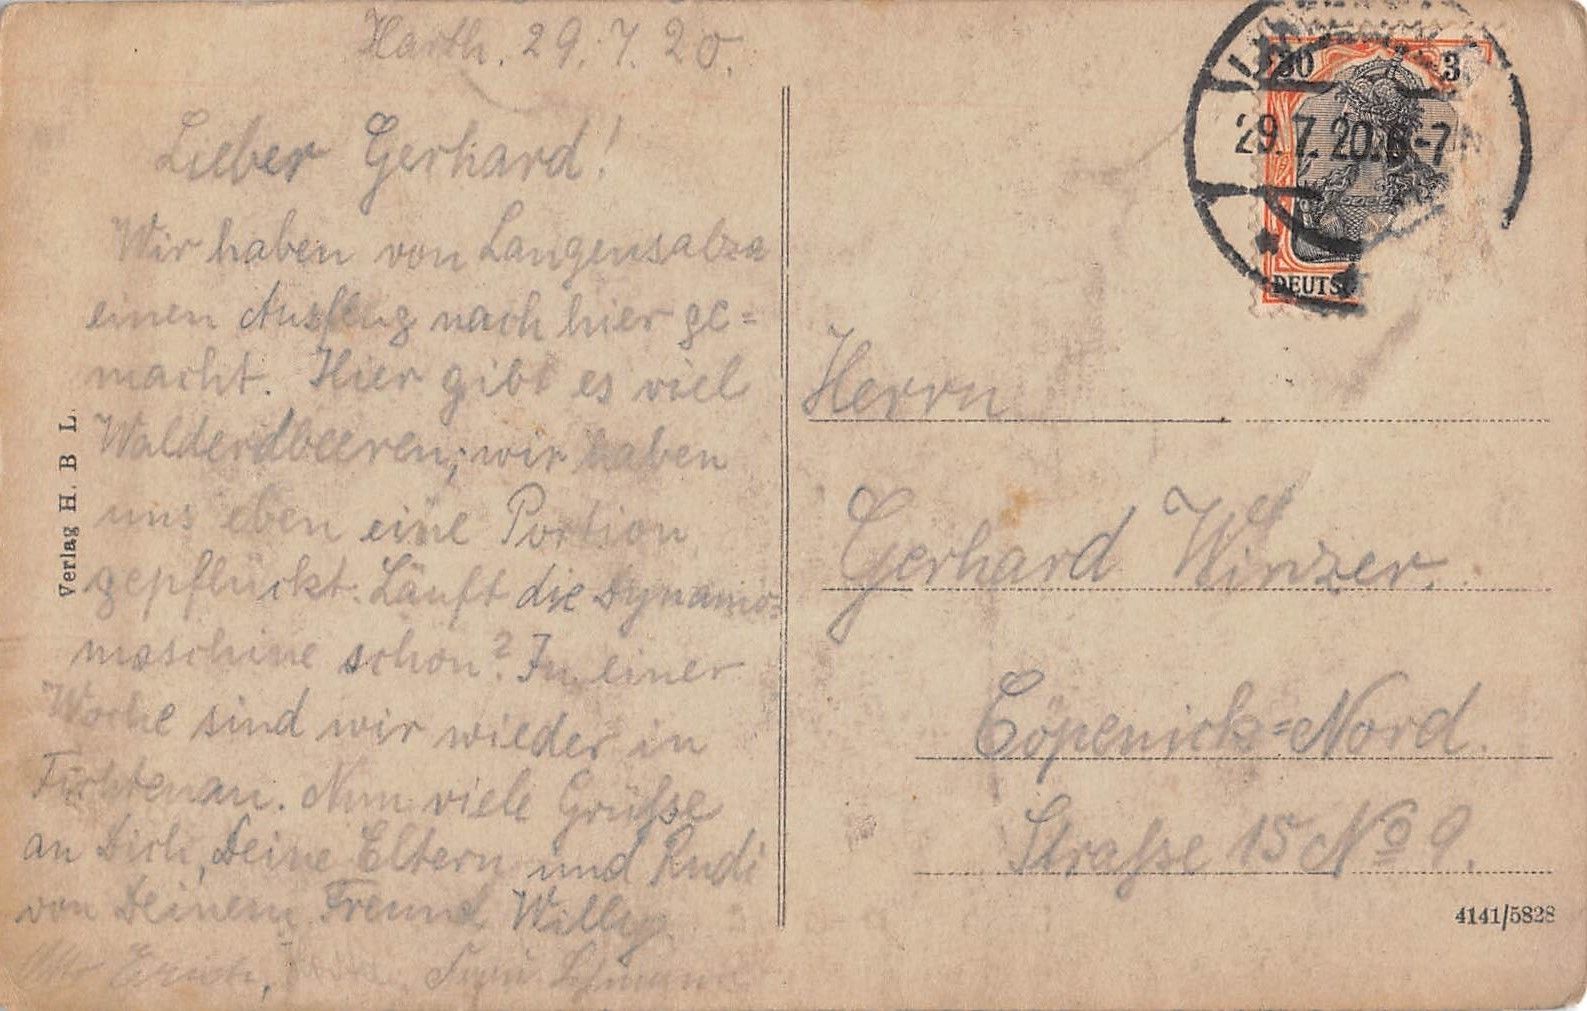 Harth. 29.7.20.
Lieber Gerhard!
Wir haben von Langensalza
einen Ausflug nach hier ge=
macht. Hier gibt es viel
Walderdbeeren; wir haben
uns eben eine Portion
gepflückt. Läuft die Dynamo=
maschine schon? In einer
Woche sind wir wieder in
Fichtenau. Nun viele Grüße
an Dich, Deine Eltern und Rudi
von Deinem Freund Willy.
Erich,
Verlag H. B L.
30 3
29.7.20.6-7N
DEUTS
Herrn
Gerhard Winzer.
Cöpenick=Nord.
Straße 15 No 9.
4141/5828